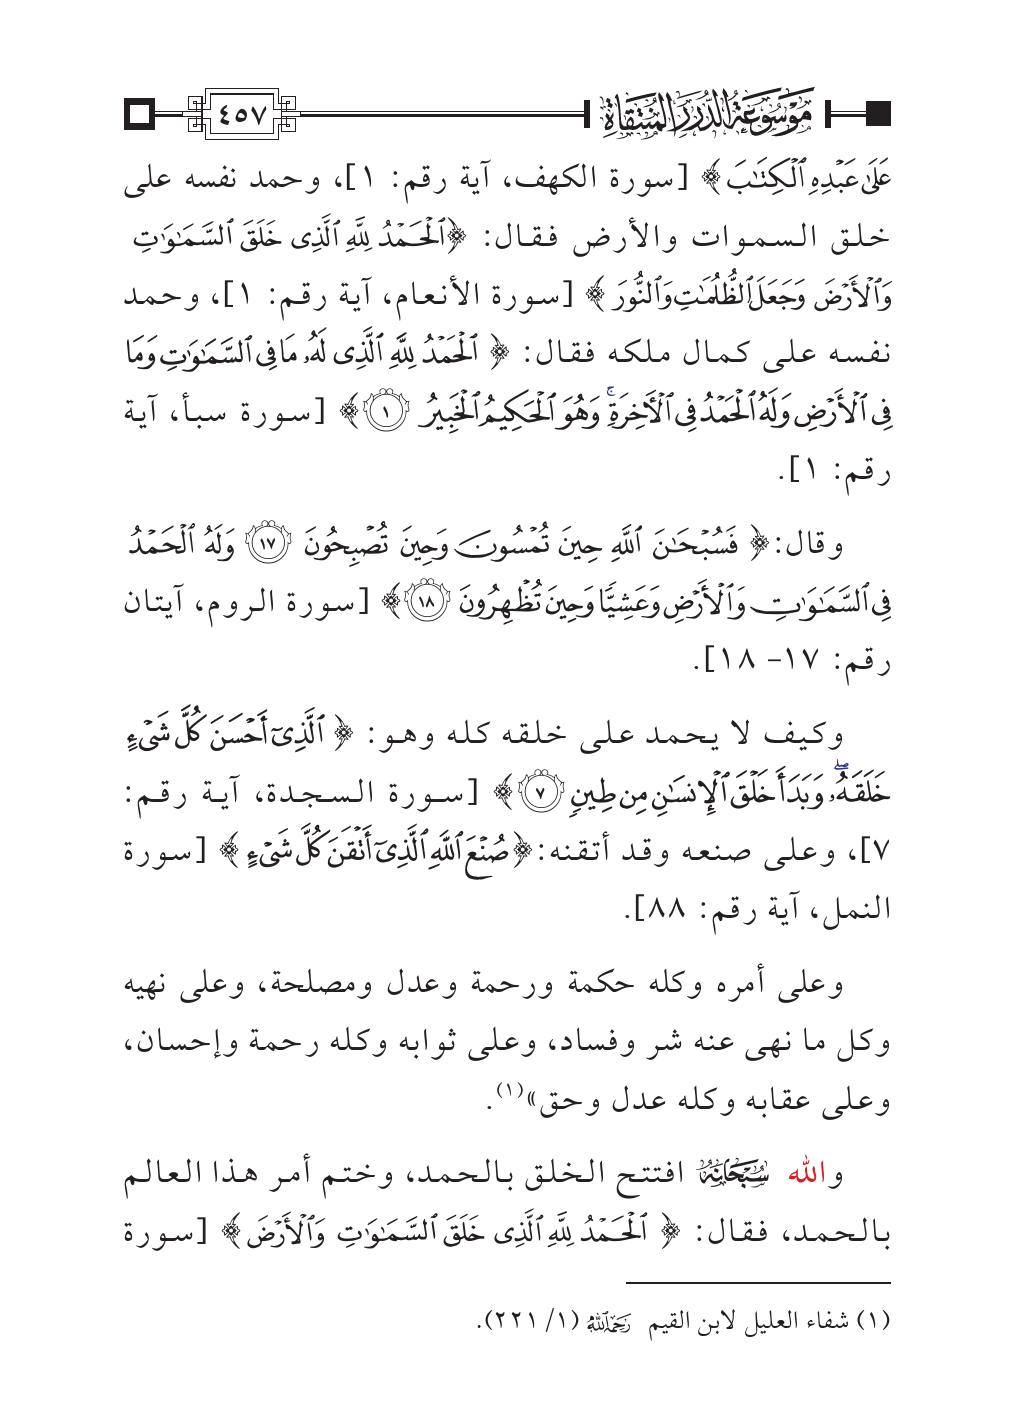 موسوعة الدرر المنتقاة ٤٥٧
عَلَىٰ عَبْدِهِ ٱلْكِتَٰبَ ﴾ [سورة الكهف، آية رقم: ١]، وحمد نفسه على
خلق السموات والأرض فقال: ﴿ٱلْحَمْدُ لِلَّهِ ٱلَّذِى خَلَقَ ٱلسَّمَٰوَٰتِ
وَٱلْأَرْضَ وَجَعَلَ ٱلظُّلُمَٰتِ وَٱلنُّورَ ﴾ [سورة الأنعام، آية رقم: ١]، وحمد
نفسه على كمال ملكه فقال: ﴿ ٱلْحَمْدُ لِلَّهِ ٱلَّذِى لَهُۥ مَا فِى ٱلسَّمَٰوَٰتِ وَمَا
فِى ٱلْأَرْضِ وَلَهُ ٱلْحَمْدُ فِى ٱلْأَخِرَةِ ۚ وَهُوَ ٱلْحَكِيمُ ٱلْخَبِيرُ ١ ﴾ [سورة سبأ، آية
رقم: ١].
وقال: ﴿ فَسُبْحَٰنَ ٱللَّهِ حِينَ تُمْسُونَ وَحِينَ تُصْبِحُونَ ١٧ وَلَهُ ٱلْحَمْدُ
فِى ٱلسَّمَٰوَٰتِ وَٱلْأَرْضِ وَعَشِيًّا وَحِينَ تُظْهِرُونَ ١٨ ﴾ [سورة الروم، آيتان
رقم: ١٧- ١٨].
وكيف لا يحمد على خلقه كله وهو: ﴿ ٱلَّذِىٓ أَحْسَنَ كُلَّ شَىْءٍ
خَلَقَهُۥ ۖ وَبَدَأَ خَلْقَ ٱلْإِنسَٰنِ مِن طِينٍ ٧ ﴾ [سورة السجدة، آية رقم:
٧]، وعلى صنعه وقد أتقنه: ﴿ صُنْعَ ٱللَّهِ ٱلَّذِىٓ أَتْقَنَ كُلَّ شَىْءٍ ﴾ [سورة
النمل، آية رقم: ٨٨].
وعلى أمره وكله حكمة ورحمة وعدل ومصلحة، وعلى نهيه
وكل ما نهى عنه شر وفساد، وعلى ثوابه وكله رحمة وإحسان،
وعلى عقابه وكله عدل وحق»(١).
والله سُبْحَانَهُ افتتح الخلق بالحمد، وختم أمر هذا العالم
بالحمد، فقال: ﴿ ٱلْحَمْدُ لِلَّهِ ٱلَّذِى خَلَقَ ٱلسَّمَٰوَٰتِ وَٱلْأَرْضَ ﴾ [سورة
(١) شفاء العليل لابن القيم رحمه الله (١/ ٢٢١).